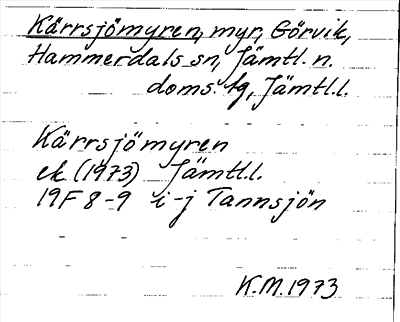 Kärrsjömyren, myr, Görvik,
Hammerdals sn, Jämtl. n.
doms. tg, Jämtl.l.
Kärrsjömyren
ek (1973) Jämtl.l.
19F 8-9 i-j Tannsjön
K.M. 1973